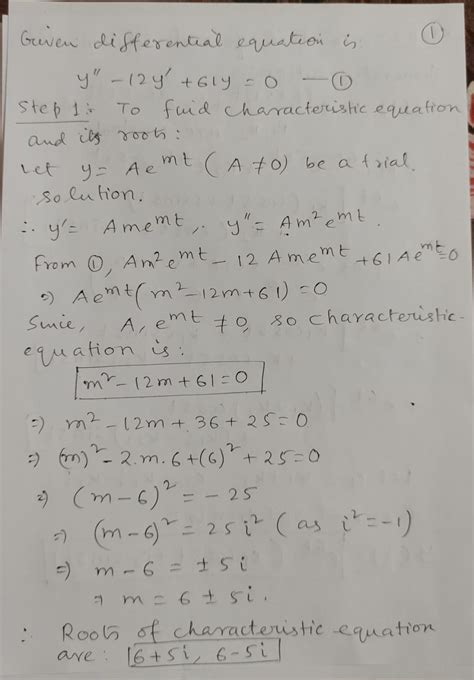 Given differential equation is ①
y" - 12y' + 61y = 0 — ①
Step 1:- To find characteristic equation
and its roots:
Let y = Ae^{mt} (A ≠ 0) be a trial
solution.
∴ y' = Ame^{mt}, ∴ y" = Am²e^{mt}.
From ①, Am²e^{mt} - 12 Ame^{mt} + 61 Ae^{mt} = 0
⇒ Ae^{mt}(m² - 12m + 61) = 0
Since, A, e^{mt} ≠ 0, so characteristic-
equation is:
m² - 12m + 61 = 0
⇒) m² - 12m + 36 + 25 = 0
⇒ (m)² - 2.m.6 + (6)² + 25 = 0
⇒ (m - 6)² = - 25
⇒ (m - 6)² = 25i² (as i² = -1)
⇒ m - 6 = ± 5i
⇒ m = 6 ± 5i.
∴ Roots of characteristic equation
are: 6+5i, 6-5i